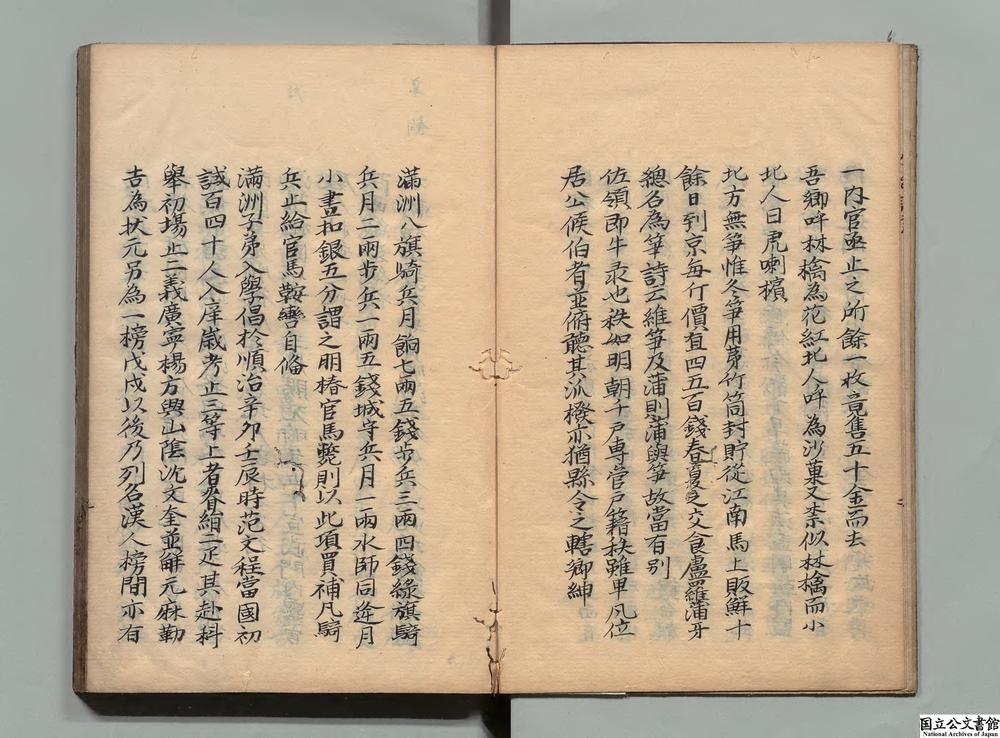 一內官亟止之所餘一枚竟售五十金而去
吾鄉呼林檎為花紅北人呼為沙菓又柰似林檎而小
北人曰虎喇檳
北方無笋惟冬笋用茅竹筒封貯從江南馬上販鮮十
餘日到京每斤價有四五百錢春夏之交食盧羅蒲牙
總名為笋詩云維笋及蒲則蒲與笋故當有别
佐領即牛彔也秩如明朝千戶專管戶籍秩雖卑凡位
居公侯伯者並俯聽其派撥亦猶縣令之轄鄉紳
滿洲八旗騎兵月餉七兩五錢步兵三兩四錢綠旗騎
兵月二兩步兵一兩五錢城守兵月一兩水師同逄月
小盡扣銀五分謂之朋樁官馬斃則以此項買補凡騎
兵止給官馬鞍轡自俻
滿洲子弟入學倡於順治辛卯壬辰時范文程當國初
試百四十人入庠歲考止三等上者賚絹二疋其赴科
舉初場止二義廣寧楊方興山陰沈文奎並解元麻勒
吉為狀元另為一榜戊戌以後乃列名漢人榜間亦有
国立公文書館
National Archives of Japan